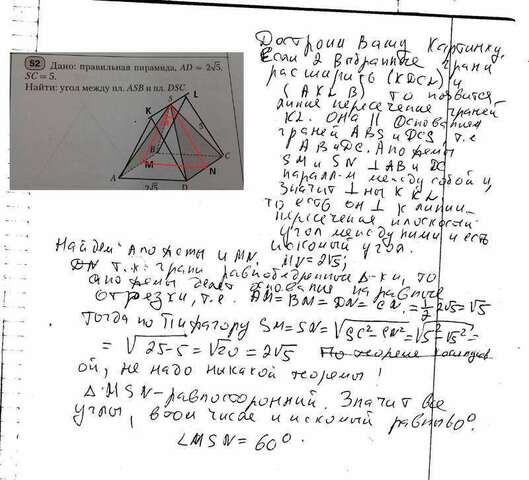 S2 Дано: правильная пирамида, AD = 2√5,
SC = 5.
Найти: угол между пл. ASB и пл. DSC.
K
S
L
5
B
C
M
N
A
2√5
D
Достроим Вашу картинку.
Если 2 выбранные грани
расширить (KDCL) и
(AKLB) то появится
линия пересечения граней
KL. Она || основаниям
граней ABS и DCS т.е
AB и DC. Апофемы
SM и SN ⊥ AB и DC
паралл-м между собой и,
значит ⊥ны к KL
то есть они ⊥ к линии
пересечения плоскостей
угол между ними и есть
искомый угол.
Найдем апофеты и MN. MN = 2√5;
DN т.к. грани равнобедренные Δ-ки, то
апофемы делят основания на равные
отрезки, т.е. AM = BM = DN = CN = 1/2 2√5 = √5
Тогда по Пифагору SM = SN = √SC²-CN² = √5²-√5² =
= √25-5 = √20 = 2√5 По теореме косинусов
ой, не надо никакой теоремы!
Δ MSN - равносторонний. Значит все
углы, в том числе и искомый равны 60°.
∠MSN = 60°.